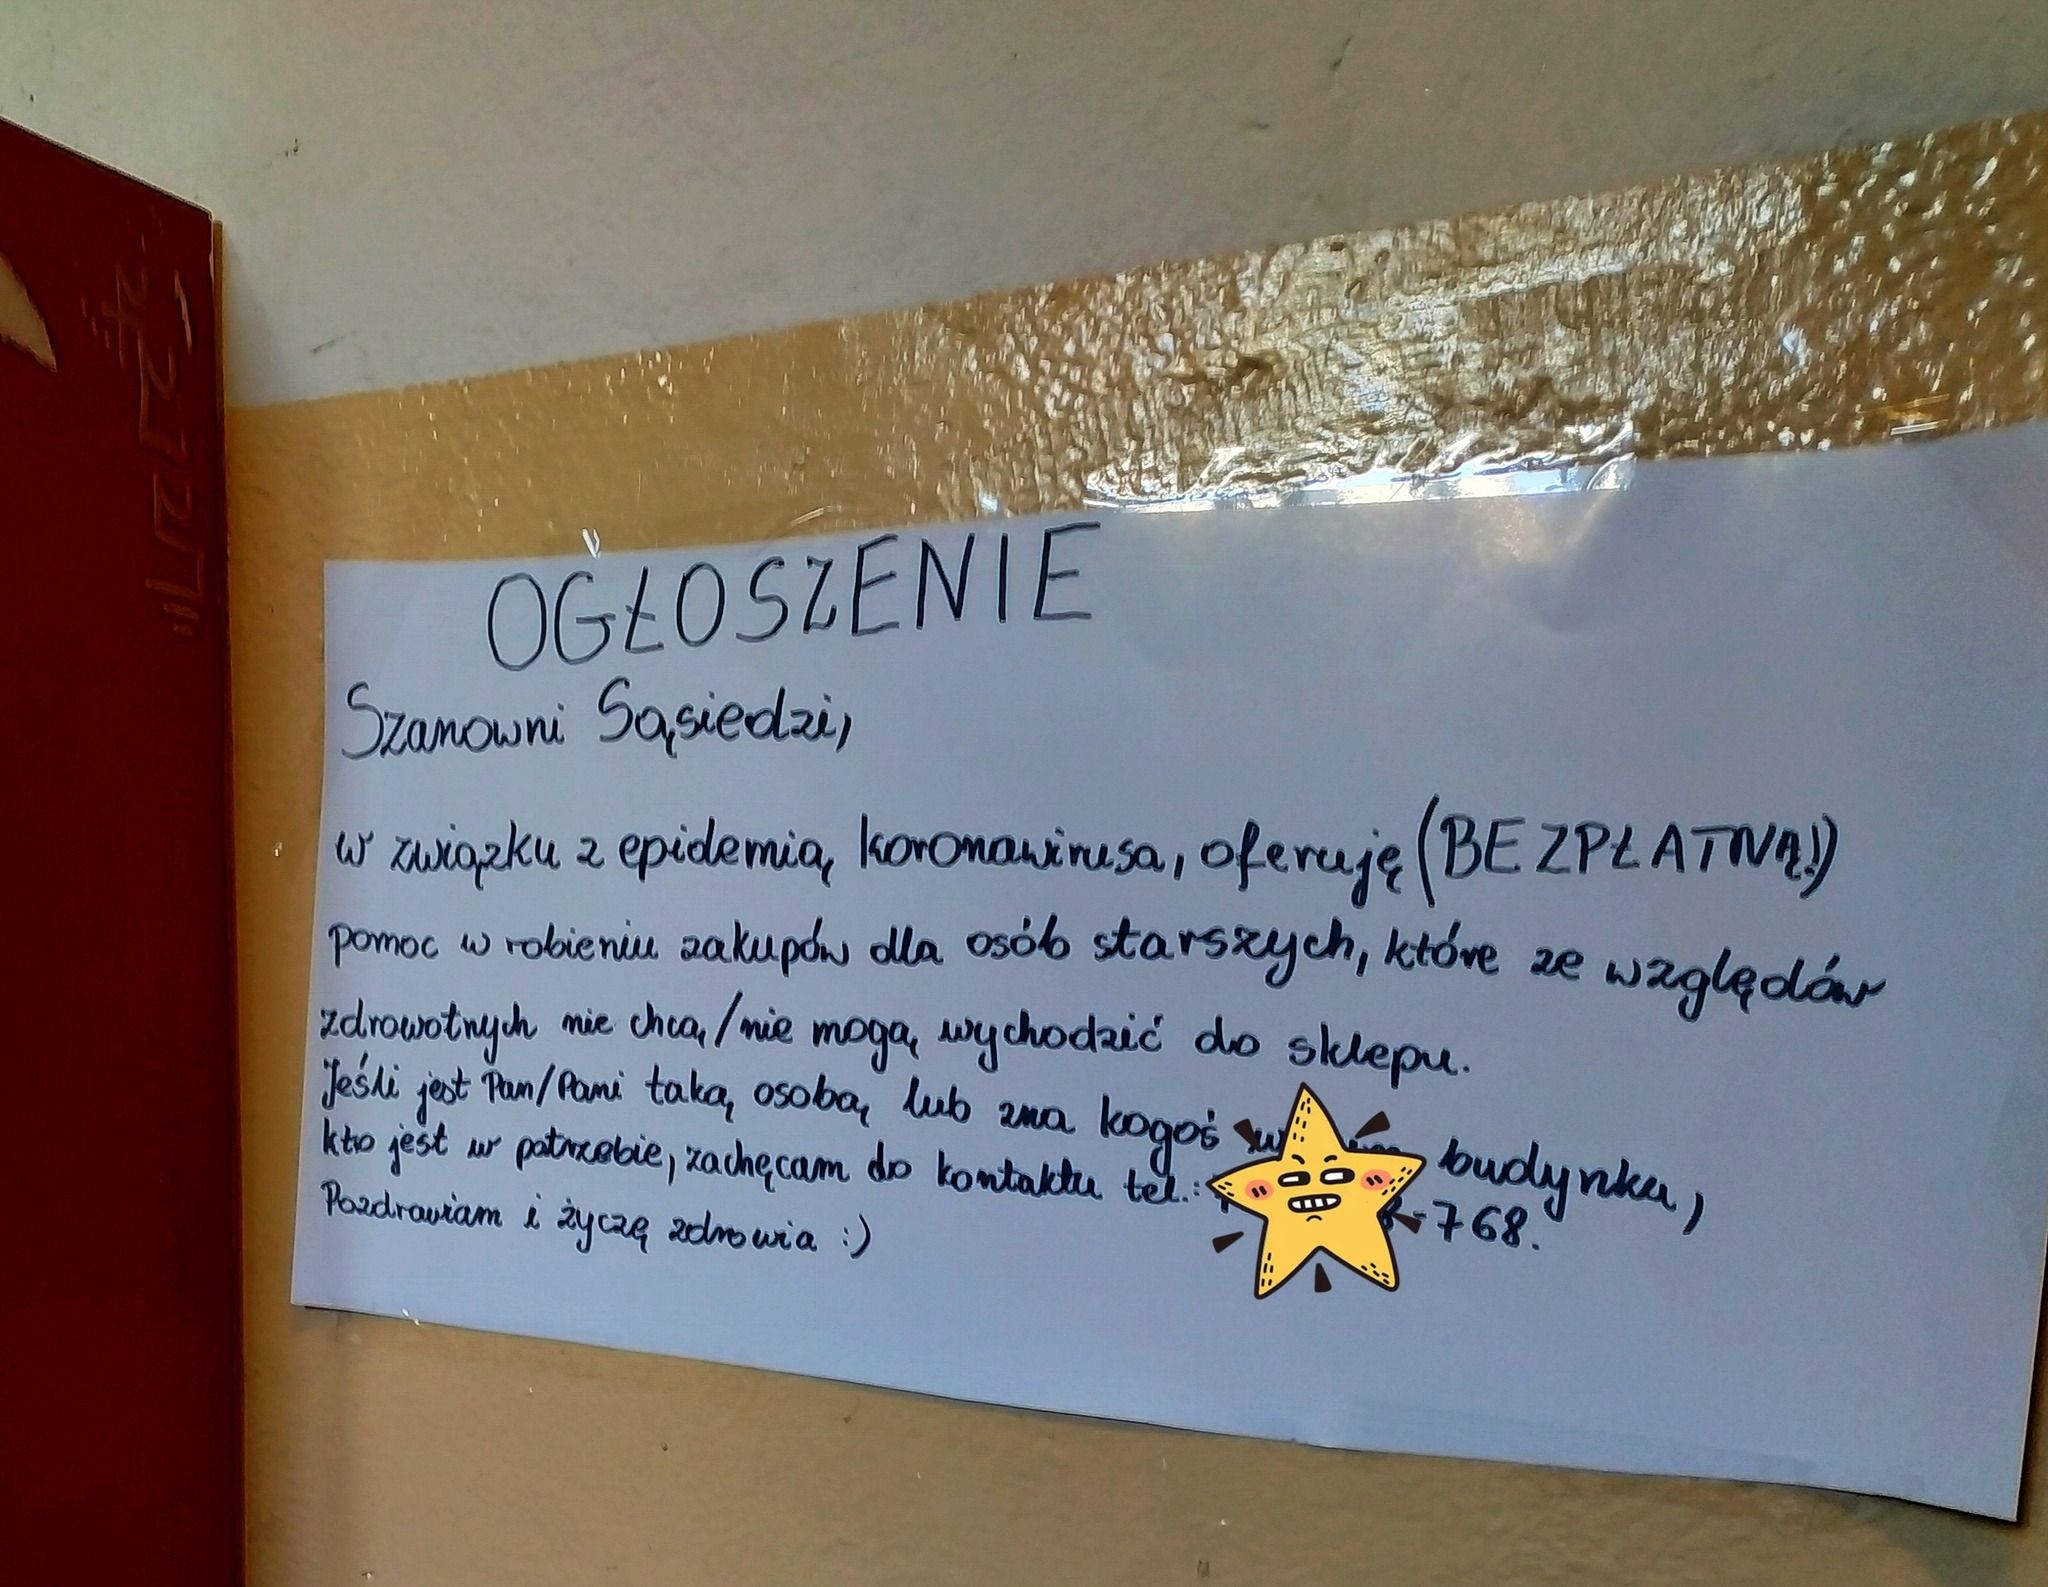 OGŁOSZENIE
Szanowni Sąsiedzi,
w związku z epidemią koronawirusa, oferuję (BEZPŁATNĄ!)
pomoc w robieniu zakupów dla osób starszych, które ze względów
zdrowotnych nie chcą/nie mogą wychodzić do sklepu.
Jeśli jest Pan/Pani taką osobą lub zna kogoś budynku,
kto jest w potrzebie, zachęcam do kontaktu tel.: -768.
Pozdrawiam i życzę zdrowia :)